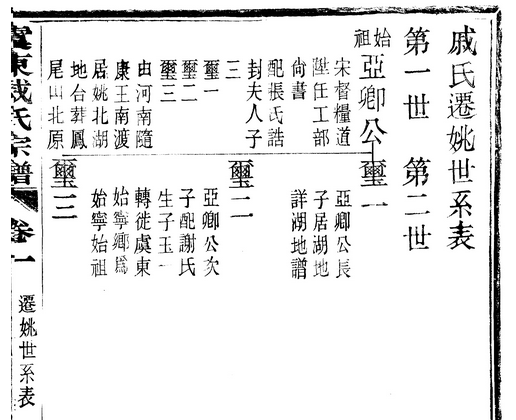 戚氏遷姚世系表
第一世　第二世
始祖亞卿公　璽一
宋督糧道
陞任工部
尙書
配張氏誥
封夫人子
三
璽一
璽二
璽三
由河南隨
康王南渡
居姚北湖
地台葬鳳
尾山北原
亞卿公長
子居湖地
詳湖地譜
璽二
亞卿公次
子配謝氏
生子玉一
轉徙虞東
始寧鄉爲
始寧始祖
璽三
虞東戚氏宗譜　卷一　遷姚世系表